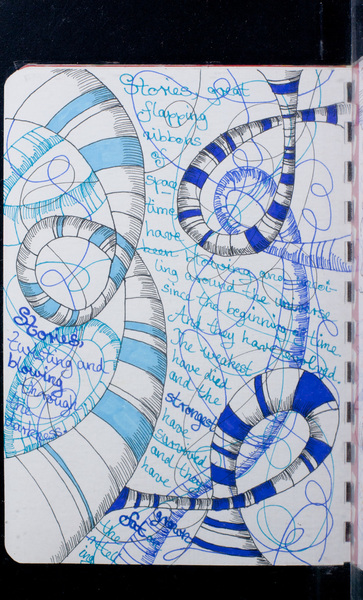 Stories, great
flapping
ribbons
of
space
time
have
been blowing and twist-
ing around the universe
since the beginning of time.
And they have evolved.
The weakest
have died
and the
strongest
have
survived
and they
have
grown
fat
on
the
retell
ing
Stories,
twisting and
blowing
through
the
darkness.